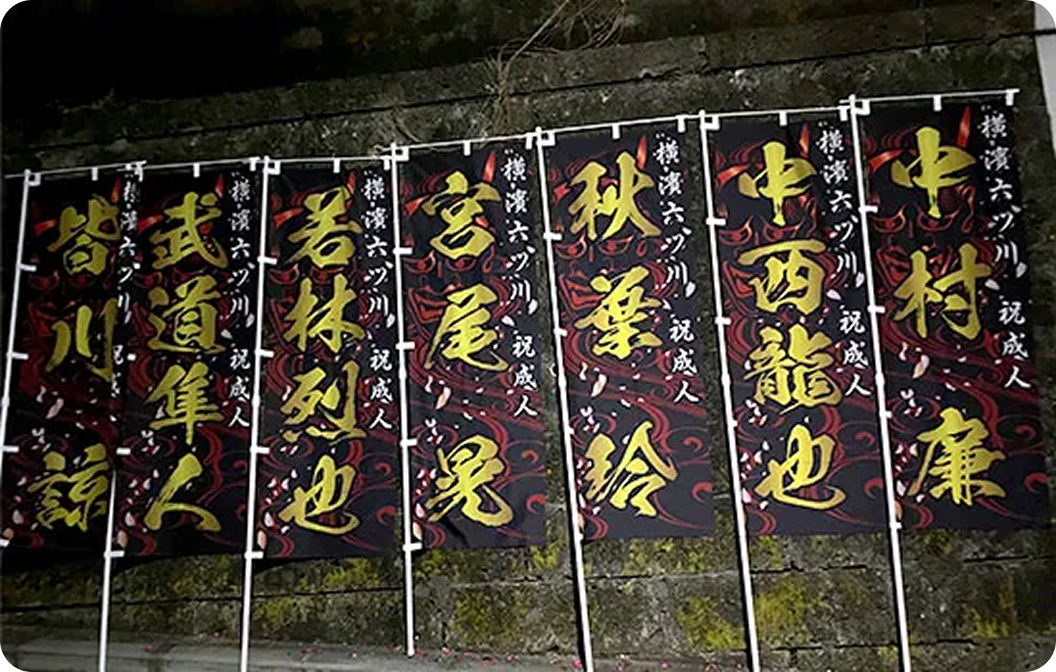 横濱六ッ川 祝成人
中村 廉
横濱六ッ川 祝成人
中西龍也
横濱六ッ川 祝成人
秋葉 玲
横濱六ッ川 祝成人
宮尾 晃
横濱六ッ川 祝成人
若林烈也
横濱六ッ川 祝成人
武道隼人
横濱六ッ川 祝成
皆川 諒